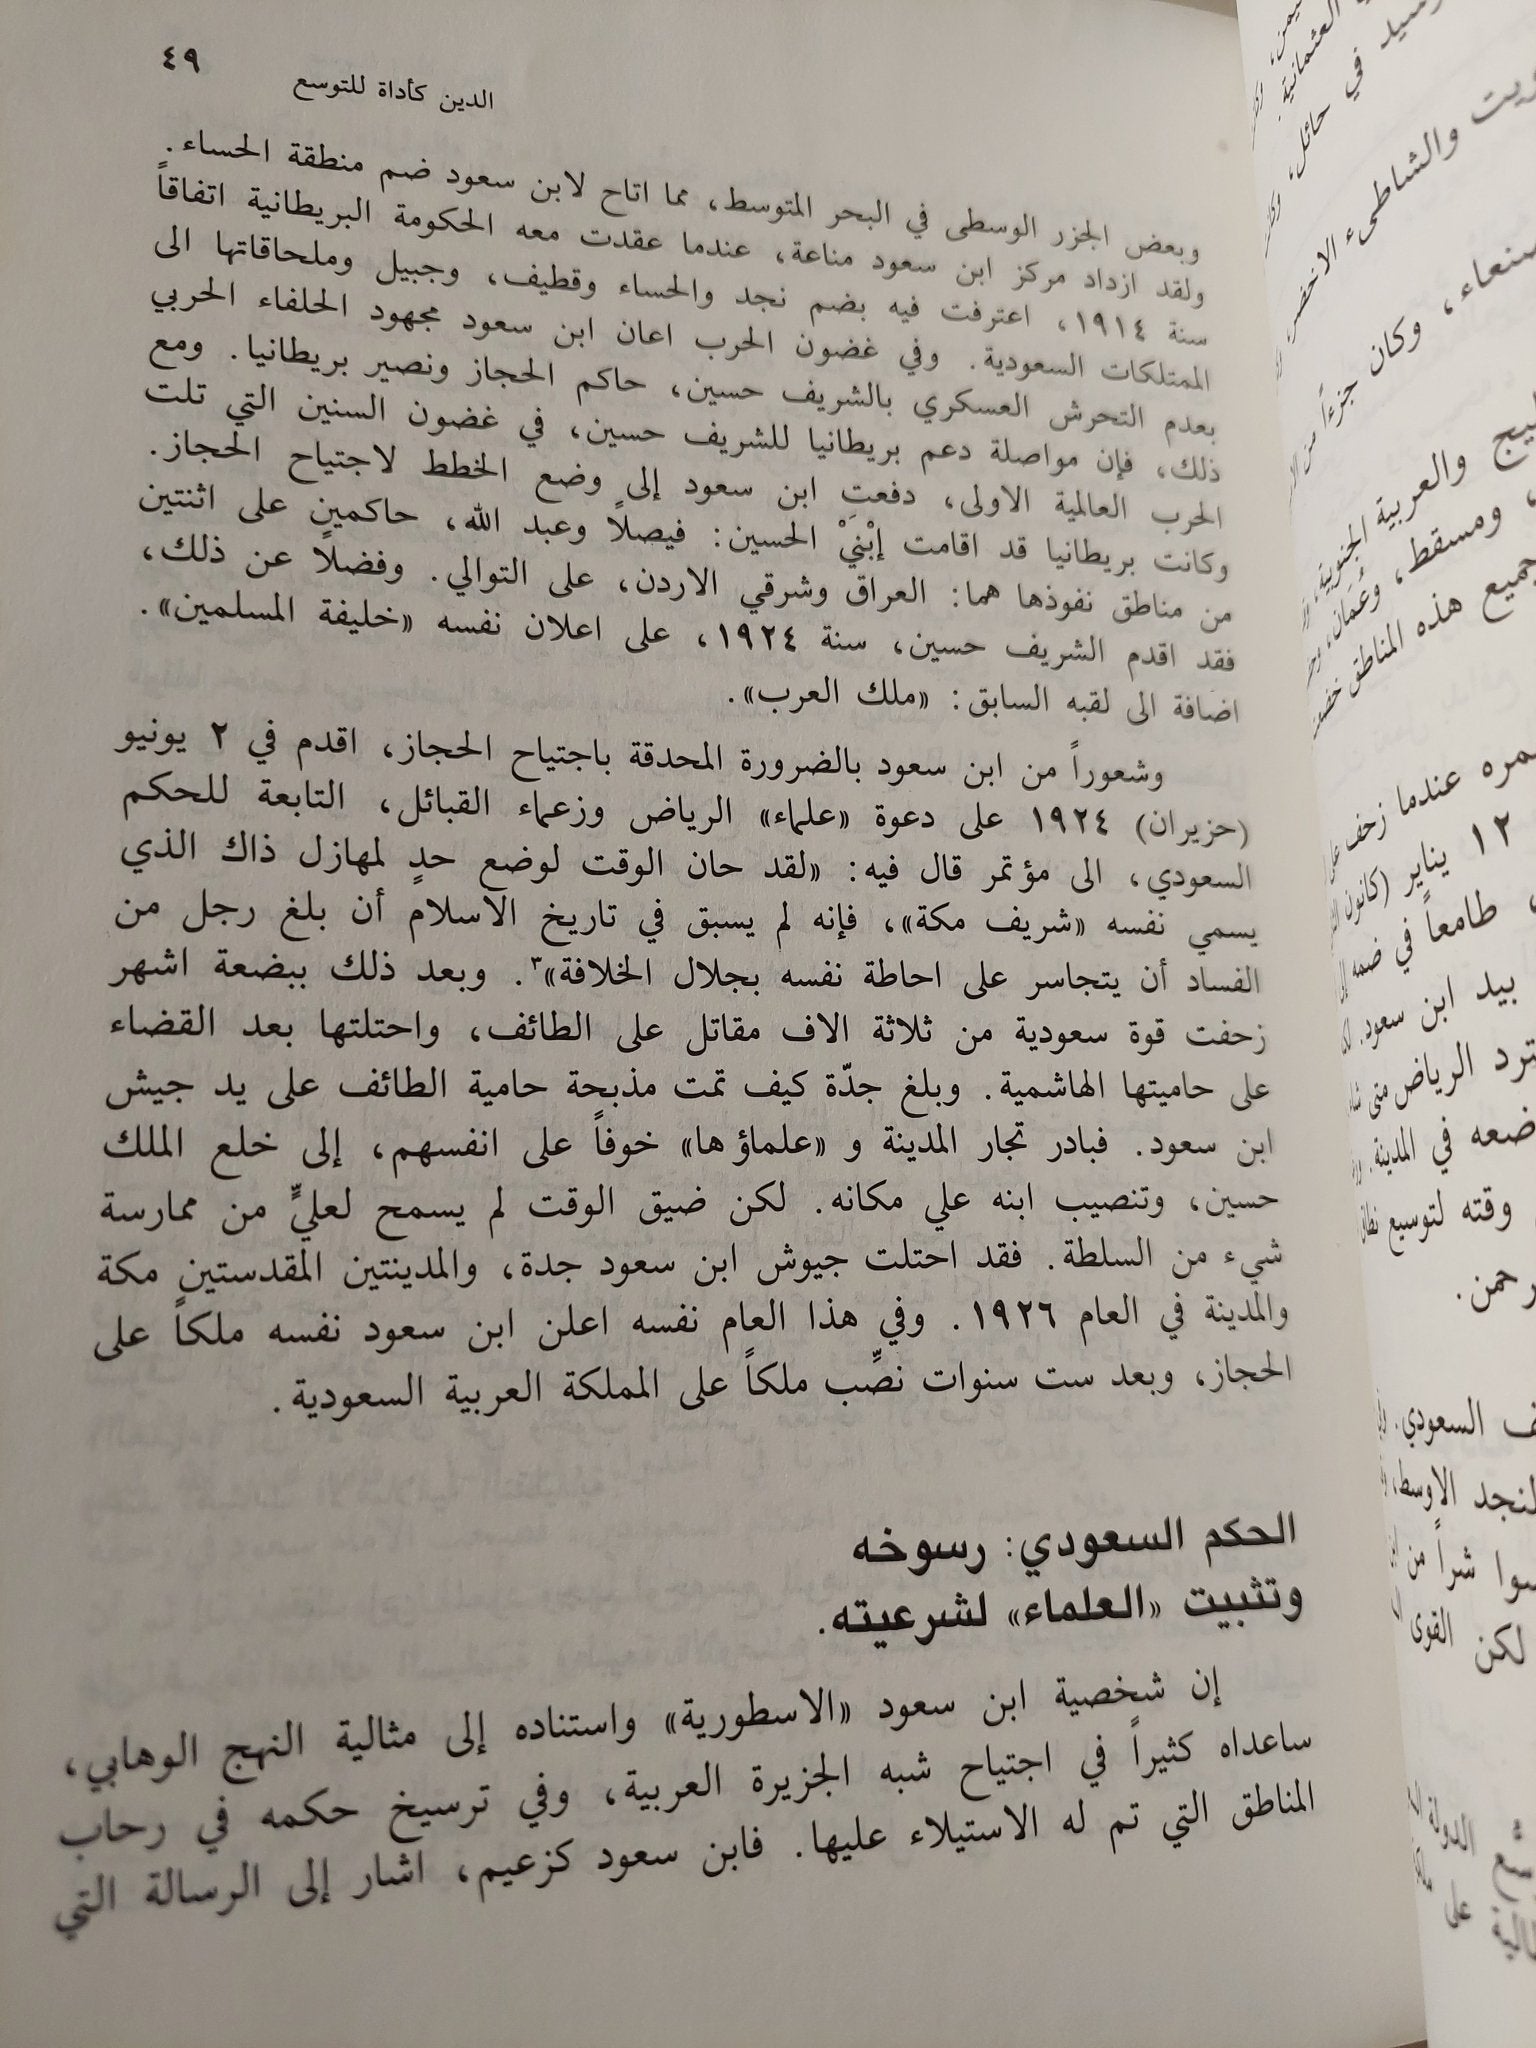 ٤٩
الدين كأداة للتوسع
وبعض الجزر الوسطى في البحر المتوسط، مما اتاح لابن سعود ضم منطقة الحساء.
ولقد ازداد مركز ابن سعود مناعة، عندما عقدت معه الحكومة البريطانية اتفاقاً
سنة ١٩١٤، اعترفت فيه بضم نجد والحساء وقطيف، وجبيل وملحاقاتها الى
الممتلكات السعودية. وفي غضون الحرب اعان ابن سعود مجهود الحلفاء الحربي
بعدم التحرش العسكري بالشريف حسين، حاكم الحجاز ونصير بريطانيا. ومع
ذلك، فإن مواصلة دعم بريطانيا للشريف حسين، في غضون السنين التي تلت
الحرب العالمية الاولى، دفعتِ ابن سعود إلى وضع الخطط لاجتياح الحجاز.
وكانت بريطانيا قد اقامت إبْنيْ الحسين: فيصلاً وعبد الله، حاكمين على اثنتين
من مناطق نفوذها هما: العراق وشرقي الاردن، على التوالي. وفضلاً عن ذلك،
فقد اقدم الشريف حسين، سنة ١٩٢٤، على اعلان نفسه «خليفة المسلمين».
اضافة الى لقبه السابق: «ملك العرب».
وشعوراً من ابن سعود بالضرورة المحدقة باجتياح الحجاز، اقدم في ٢ يونيو
(حزيران) ١٩٢٤ على دعوة «علماء» الرياض وزعماء القبائل، التابعة للحكم
السعودي، الى مؤتمر قال فيه: «لقد حان الوقت لوضع حدٍ لمهازل ذاك الذي
يسمي نفسه «شريف مكة»، فإنه لم يسبق في تاريخ الاسلام أن بلغ رجل من
الفساد أن يتجاسر على احاطة نفسه بجلال الخلافة»٣. وبعد ذلك ببضعة اشهر
زحفت قوة سعودية من ثلاثة الاف مقاتل على الطائف، واحتلتها بعد القضاء
على حاميتها الهاشمية. وبلغ جدّة كيف تمت مذبحة حامية الطائف على يد جيش
ابن سعود. فبادر تجار المدينة و «علماؤها» خوفاً على انفسهم، إلى خلع الملك
حسين، وتنصيب ابنه علي مكانه. لكن ضيق الوقت لم يسمح لعليٍّ من ممارسة
شيء من السلطة. فقد احتلت جيوش ابن سعود جدة، والمدينتين المقدستين مكة
والمدينة في العام ١٩٢٦. وفي هذا العام نفسه اعلن ابن سعود نفسه ملكاً على
الحجاز، وبعد ست سنوات نصِّب ملكاً على المملكة العربية السعودية.
الحكم السعودي: رسوخه
وتثبيت «العلماء» لشرعيته.
إن شخصية ابن سعود «الاسطورية» واستناده إلى مثالية النهج الوهابي،
ساعداه كثيراً في اجتياح شبه الجزيرة العربية، وفي ترسيخ حكمه في رحاب
المناطق التي تم له الاستيلاء عليها. فابن سعود كزعيم، اشار إلى الرسالة التي
العثمانية.
في حائل،
والشاطىء الاخضر
وكان جزءاً من
والعربية الجنوبية،
ومسقط، وعُمان،
هذه المناطق
عندما زحف على
١٢ يناير (كانون
طامعاً في ضمه
بيد ابن سعود.
الرياض متى
في المدينة.
وقته لتوسيع
السعودي.
الاوسط،
شراً من
لكن القوى
الدولة
على